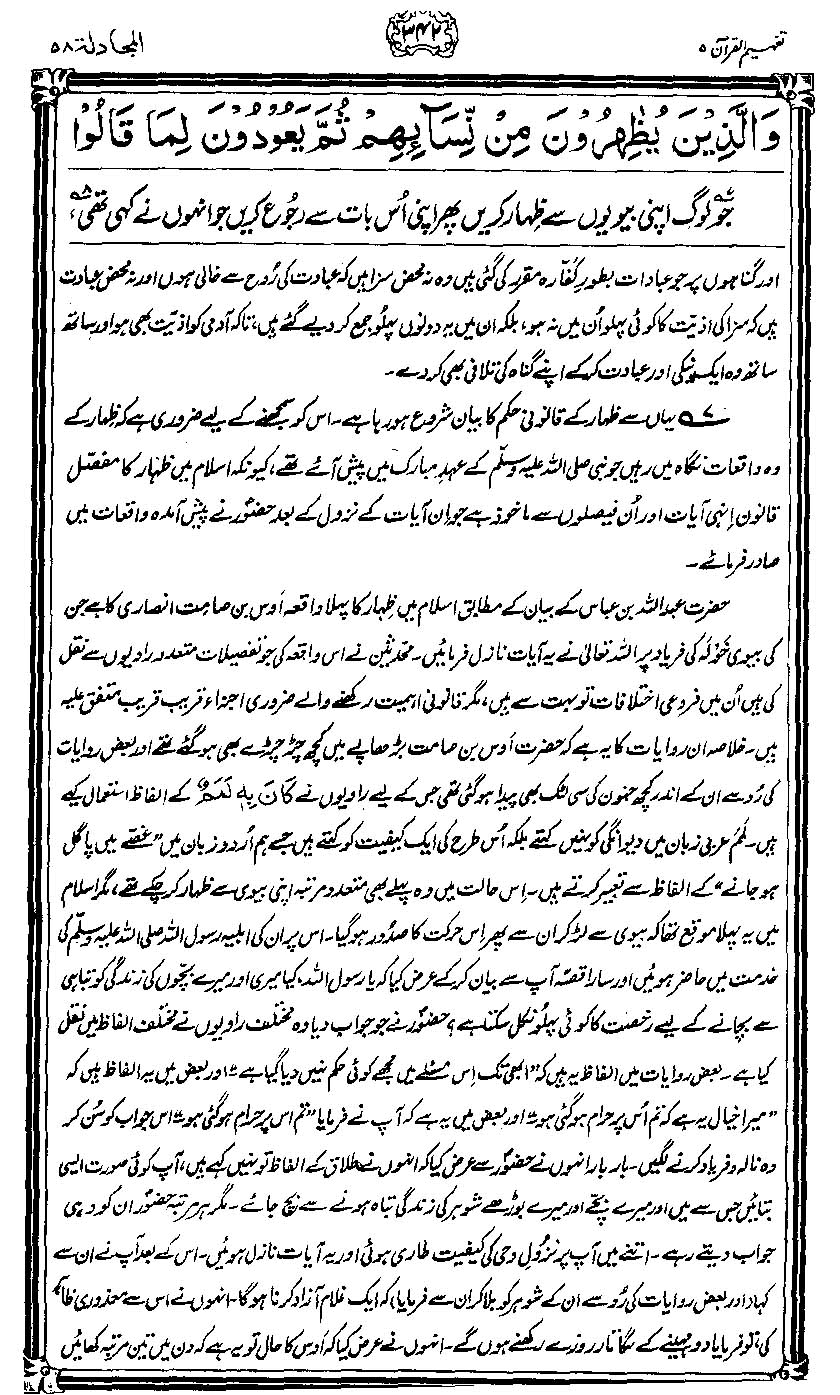 تفہیم القرآن ۵
۳۴۲
المجادلۃ ۵۸
وَالَّذِيْنَ يُظٰهِرُوْنَ مِنْ نِّسَآىِٕهِمْ ثُمَّ يَعُوْدُوْنَ لِمَا قَالُوْا
جو لوگ اپنی بیویوں سے ظِہار کریں پھر اپنی اُس بات سے رجُوع کریں جو انہوں نے کہی تھی،
اور گناہوں پر جو عبادات بطورِ کَفّارہ مقرر کی گئی ہیں وہ نہ محض سزا ہیں کہ عبادت کی رُوح سے خالی ہوں اور نہ محض عبادت
ہیں کہ سزا کی اذیّت کا کوئی پہلو اُن میں نہ ہو، بلکہ ان میں یہ دونوں پہلو جمع کر دیے گئے ہیں، تاکہ آدمی کو اذیّت بھی ہو اور ساتھ
ساتھ وہ ایک نیکی اور عبادت کرکے اپنے گناہ کی تلافی بھی کر دے۔
۷ یہاں سے ظِہار کے قانونی حکم کا بیان شروع ہو رہا ہے۔ اس کو سمجھنے کے لیے ضروری ہے کہ ظِہار کے
وہ واقعات نگاہ میں رہیں جو نبی صلی اللہ علیہ وسلّم کے عہدِ مبارک میں پیش آئے تھے، کیونکہ اسلام میں ظِہار کا مفصّل
قانون اِنہی آیات اور اُن فیصلوں سے ماخوذ ہے جو اِن آیات کے نزول کے بعد حضوؐر نے پیش آمدہ واقعات میں
صادر فرمائے۔
حضرت عبداللہ بن عباس کے بیان کے مطابق اسلام میں ظِہار کا پہلا واقعہ اَوس بن صامت انصاری کا ہے جن
کی بیوی خَولَہ کی فریاد پر اللہ تعالیٰ نے یہ آیات نازل فرمائیں۔ محدّثین نے اس واقعہ کی جو تفصیلات متعدد راویوں سے نقل
کی ہیں اُن میں فروعی اختلافات تو بہت سے ہیں، مگر قانونی اہمیت رکھنے والے ضروری اجزاء قریب قریب متفق علیہ
ہیں۔ خلاصہ ان روایات کا یہ ہے کہ حضرت اَوس بن صامت بڑھاپے میں کچھ چڑچڑے بھی ہو گئے تھے اور بعض روایات
کی رُو سے ان کے اندر کچھ جنون کی سی لٹک بھی پیدا ہو گئی تھی جس کے لیے راویوں نے كَانَ بِهٖ لَمَمٌ کے الفاظ استعمال کیے
ہیں۔ لَمَمْ عربی زبان میں دیوانگی کو نہیں کہتے بلکہ اُس طرح کی ایک کیفیت کو کہتے ہیں جسے ہم اُردو زبان میں ”غصّے میں پاگل
ہو جانے“ کے الفاظ سے تعبیر کرتے ہیں۔ اِس حالت میں وہ پہلے بھی متعدد مرتبہ اپنی بیوی سے ظِہار کر چکے تھے، مگر اسلام
میں یہ پہلا موقع تھا کہ بیوی سے لڑ کر ان سے پھر اِس حرکت کا صدُور ہو گیا۔ اس پر ان کی اہلیہ رسول اللہ صلی اللہ علیہ وسلّم کی
خدمت میں حاضر ہوئیں اور سارا قصّہ آپ سے بیان کرکے عرض کیا کہ یا رسول اللہ، کیا میری اور میرے بچّوں کی زندگی کو تباہی
سے بچانے کے لیے رخصت کا کوئی پہلو نکل سکتا ہے؟ حضوؐر نے جو جواب دیا وہ مختلف راویوں نے مختلف الفاظ میں نقل
کیا ہے۔ بعض روایات میں الفاظ یہ ہیں کہ ”ابھی تک اِس مسئلے میں مجھے کوئی حکم نہیں دیا گیا ہے“۔ اور بعض میں یہ الفاظ ہیں کہ
”میرا خیال یہ ہے کہ تم اُس پر حرام ہو گئی ہو“۔ اور بعض میں یہ ہے کہ آپ نے فرمایا ”تم اس پر حرام ہو گئی ہو“۔ اس جواب کو سُن کر
وہ نالہ و فریاد کرنے لگیں۔ بار بار انہوں نے حضوؐر سے عرض کیا کہ انہوں نے طلاق کے الفاظ تو نہیں کہے ہیں، آپ کوئی صورت ایسی
بتائیں جس سے میں اور میرے بچّے اور میرے بوڑھے شوہر کی زندگی تباہ ہونے سے بچ جائے۔ مگر ہر مرتبہ حضوؐر ان کو وہی
جواب دیتے رہے۔ اتنے میں آپ پر نزُولِ وحی کی کیفیت طاری ہوئی اور یہ آیات نازل ہوئیں۔ اس کے بعد آپ نے ان سے
کہا (اور بعض روایات کی رُو سے ان کے شوہر کو بلا کر ان سے فرمایا) کہ ایک غلام آزاد کرنا ہوگا۔ انہوں نے اس سے معذوری ظاہر
کی تو فرمایا دو مہینے کے لگاتار روزے رکھنے ہوں گے۔ انہوں نے عرض کیا کہ اَوس کا حال تو یہ ہے کہ دن میں تین مرتبہ کھائیں